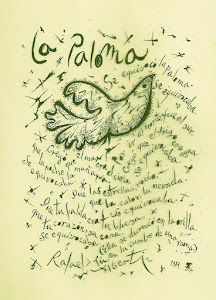 La Paloma
Se equivocó la paloma
Se equivocaba
Por ir al norte fue al sur
creyó que el trigo era agua
Se equivocaba
Creyó que el mar era el cielo
que la noche la mañana
Se equivocaba
que las estrellas rocío
que la calor la nevada
Se equivocaba
que tu falda era tu blusa
que tu corazón su casa
Se equivocaba
(Ella se durmió en la orilla
tú en la cumbre de una rama)
Rafael Alberti